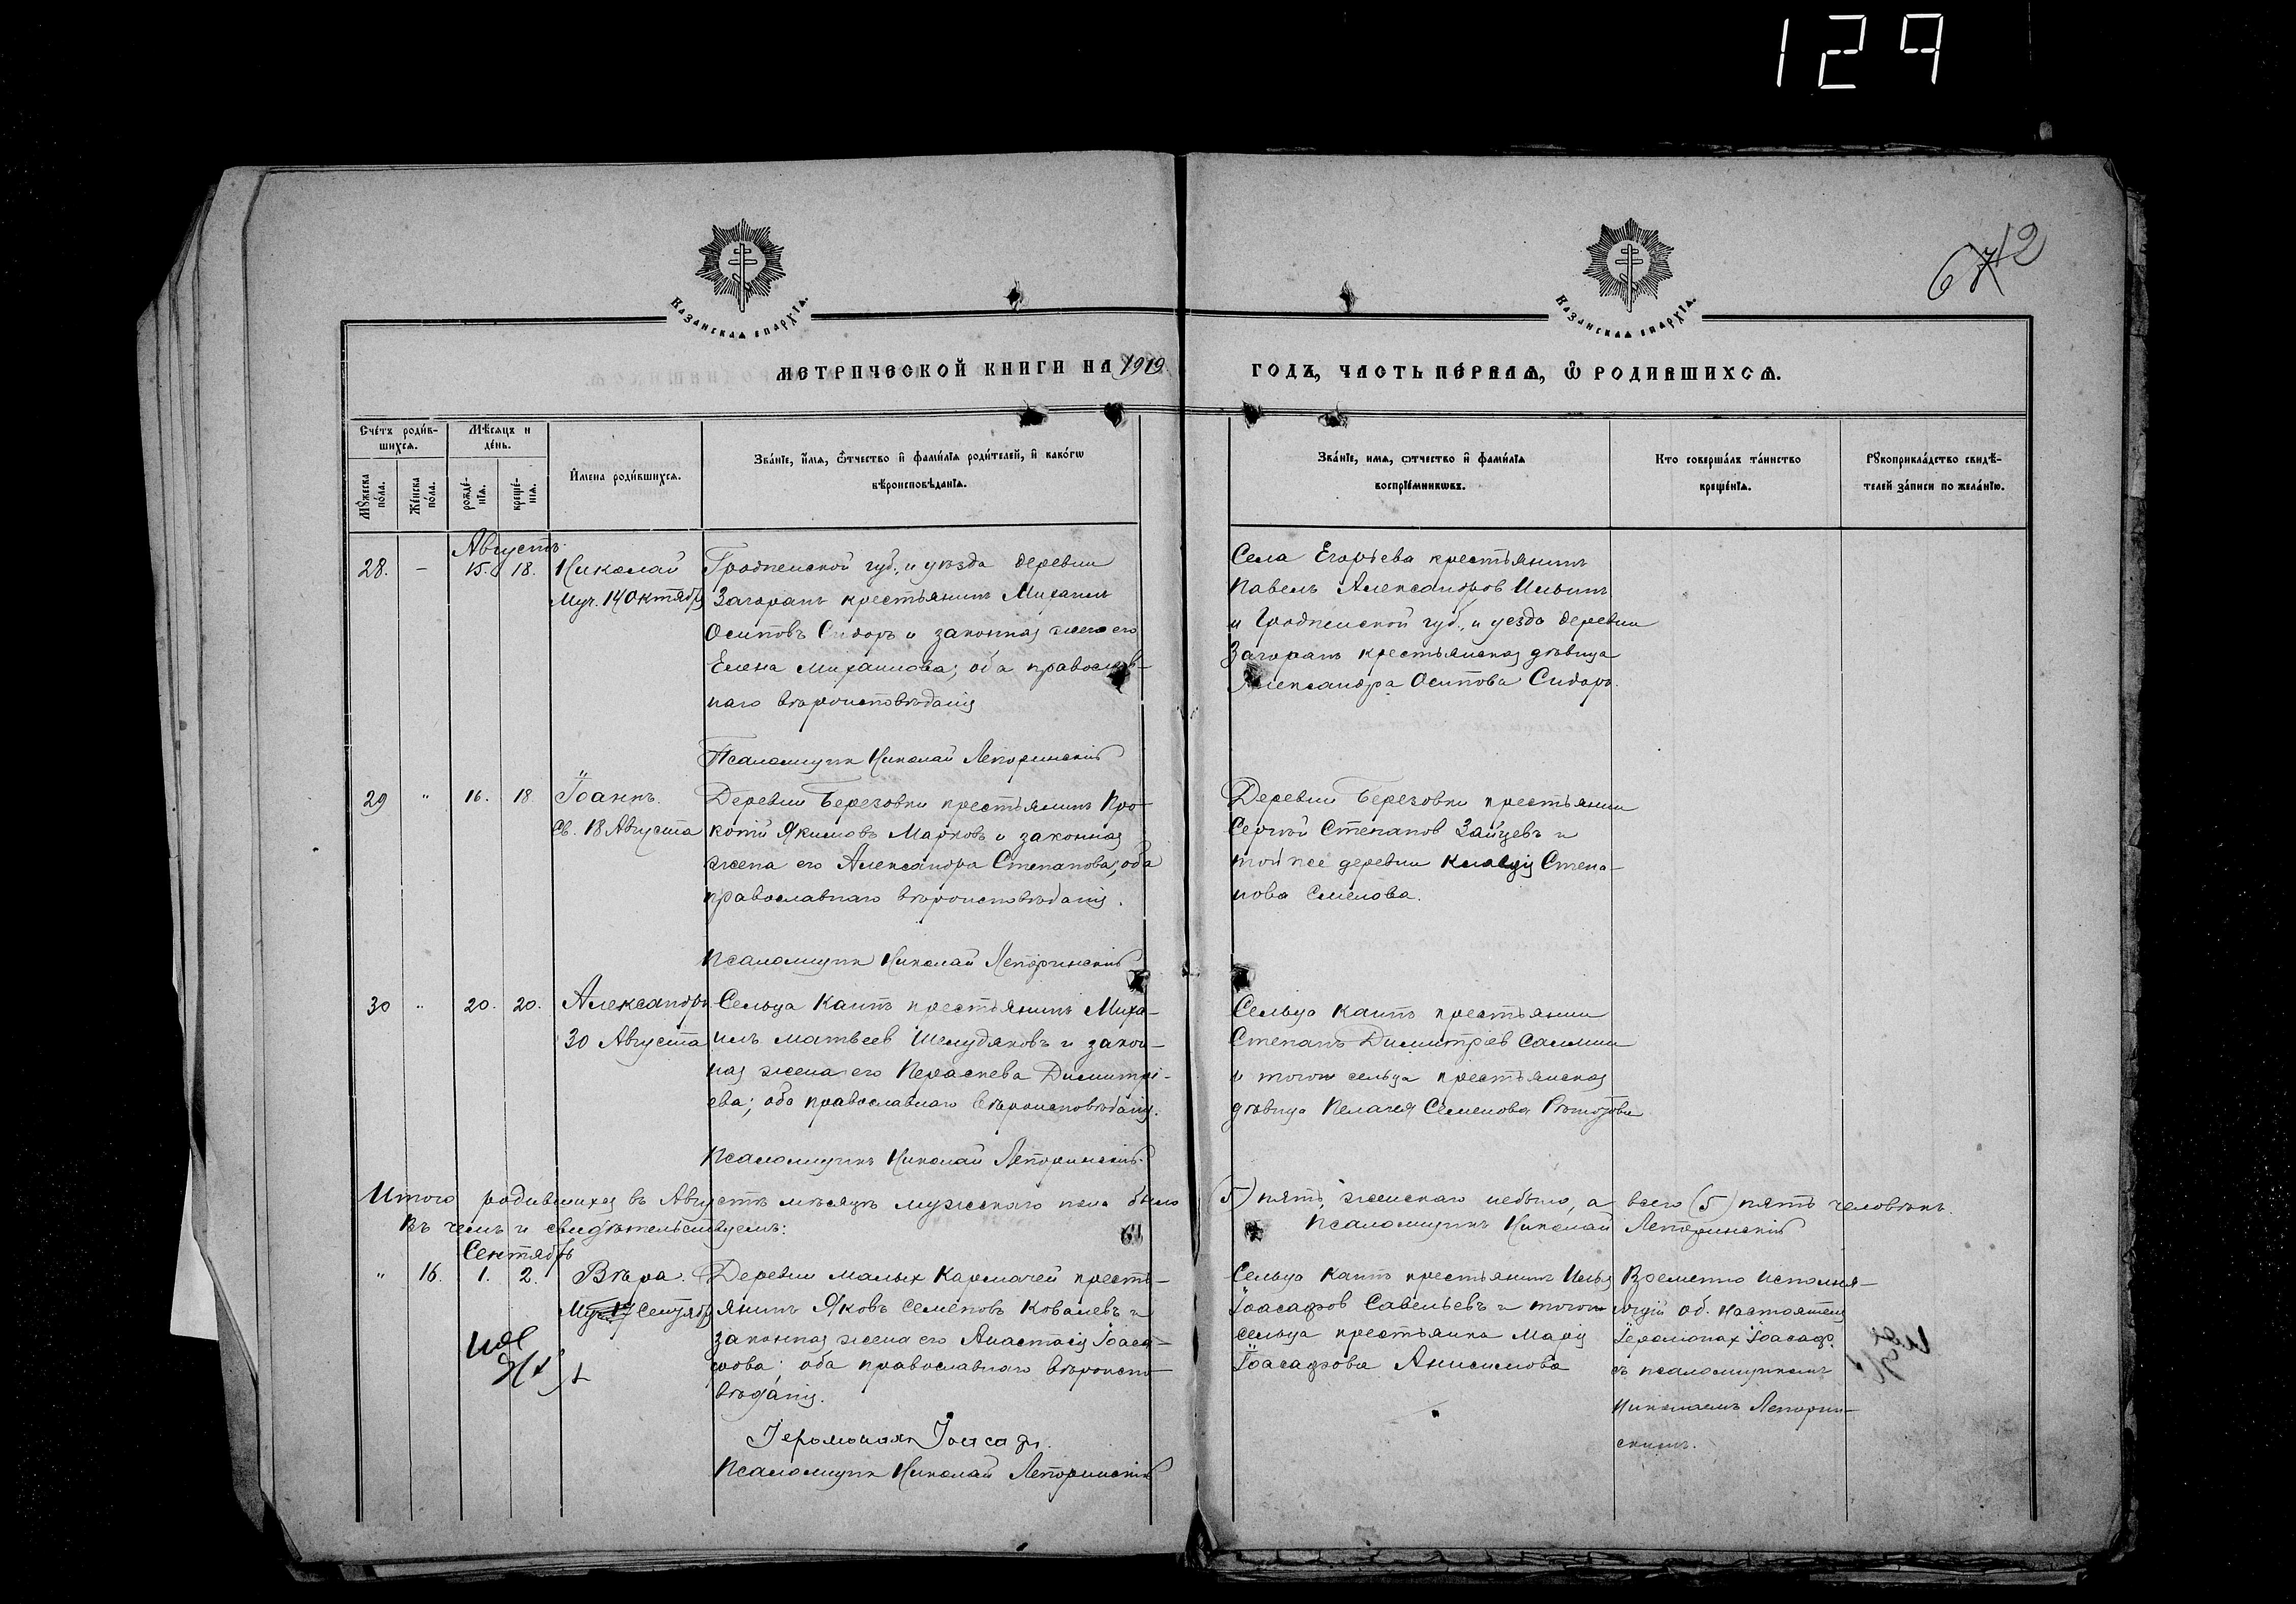 129
642
КАЗАНСКАЯ ЕПАРХІЯ.
КАЗАНСКАЯ ЕПАРХІЯ.
МЕТРИЧЕСКОЙ КНИГИ НА 1919 ГОДЪ, ЧАСТЬ ПЕРВАЯ, Ѽ РОДИВШИХСЯ.
Счетъ родив-
шихся.
Мѣсяцъ и
день.
Мужеска
пола.
Женска
пола.
рожде-
нія.
креще-
нія.
Имена родившихся.
Званіе, имя, отчество и фамилія родителей, и какогѡ
вѣроисповѣданія.
Званіе, имя, отчество и фамилія
воспріемникѡвъ.
Кто совершалъ таинство
крещенія.
Рукоприкладство свидѣ-
телей записи по желанію.
Августъ
28. – 15. 18. Николай
Муч. 14 Октябр
Гродненской губ., и уѣзда деревни
Загораны крестьянинъ Михаилъ
Осиповъ Сидоръ и законная жена его
Елена Михаилова; оба православ-
наго вѣроисповѣданія
Псаломщик Николай Лепоринскій
Села Егорьева крестьянинъ
Павелъ Александров Ильинъ
и Гродненской губ., и уезда деревни
Загораны крестьянская дѣвица
Александра Осипова Сидоръ.
29 " 16. 18 Іоаннъ.
Св. 18 Августа
Деревни Березовки крестьянинъ Про-
копій Якимовъ Марковъ и законная
жена его Александра Степанова, оба
православнаго вѣроисповѣданія.
Псаломщик Николай Лепоринскій
Деревни Березовки крестьянин
Сергѣй Степанов Зайцевъ и
той же деревни Клавдія Степа-
нова Смелова.
30 " 20. 20. Александръ
30 Августа
Сельца Каипъ крестьянинъ Миха-
илъ Матвеев Шелудяковъ и закон-
ная жена его Параскева Димитрі-
ева; оба православнаго вѣроисповѣданія.
Псаломщикъ Николай Лепоринскій
Сельца Каипъ крестьянин
Степанъ Димитріев Салмин
и тогож сельца крестьянская
дѣвица Пелагея Семенова
Итого родившихся въ Августѣ мѣсяцѣ мужскаго пола было (5) пять, женскаго небыло, а всего (5) пять человѣкъ.
Въ чемъ и свидѣтельствуемъ: Псаломщикъ Николай Лепоринскій
Сентябрь
" 16. 1. 2. Вѣра.
Муч. 17 Сентябр
Деревни Малых Кармачей кресть-
янинъ Яковъ Семеновъ Ковалевъ и
законная жена его Анастасія Іоаса-
фова; оба православнаго вѣроиспо-
вѣданія.
Іеромонах Іоасаф.
Псаломщик Николай Лепоринскій
Сельца Каипъ крестьянинъ Илья
Іоасафов Савельевъ и тогож
сельца крестьянка Марія
Іоасафова Анисимова
Временно исполня-
ющій об. настоятеля
Іеромонах Іоасаф.
съ псаломщикомъ
Николаемъ Леторин-
скимъ.